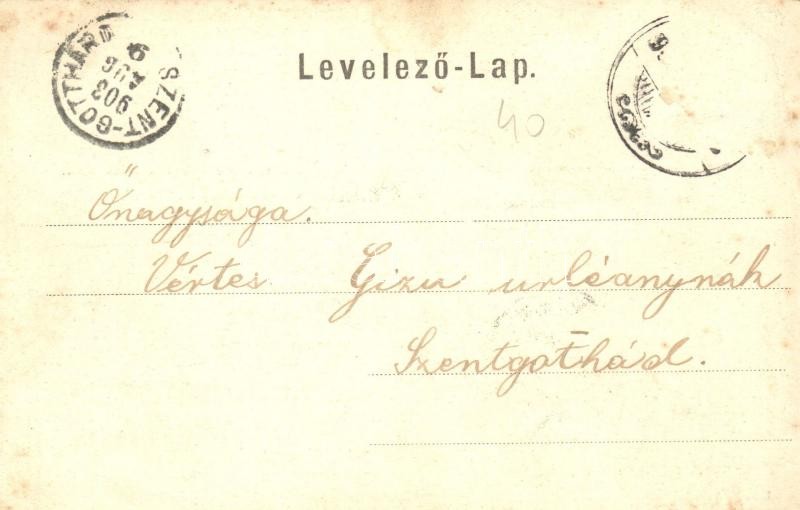 SZENT-GOTTHÁRD
903
AUG
6
Levelező-Lap.
40
Őnagysága.
Vértes Gizu urléanynák
Szentgothád.